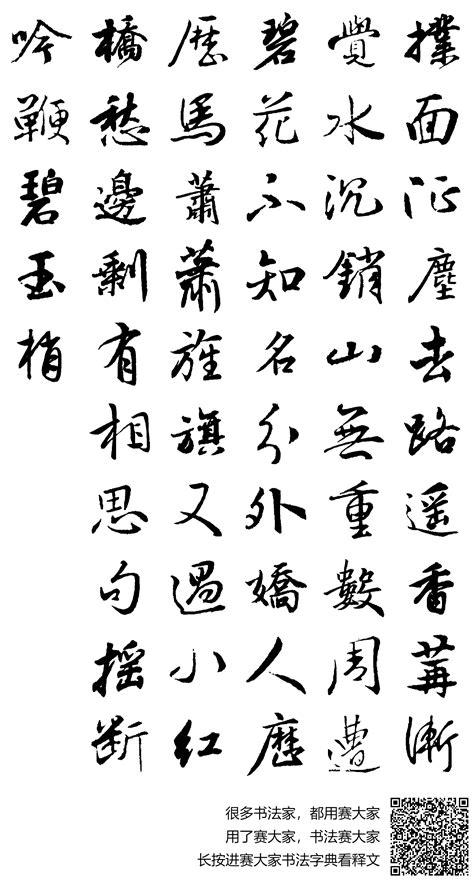 撲面征塵去路遥香篝漸
覺水沉銷山無重數周遭
碧花不知名分外嬌人歷
歷馬蕭蕭旌旗又過小紅
橋愁邊剩有相思句摇斷
吟鞭碧玉梢
很多书法家，都用赛大家
用了赛大家，书法赛大家
长按进赛大家书法字典看释文